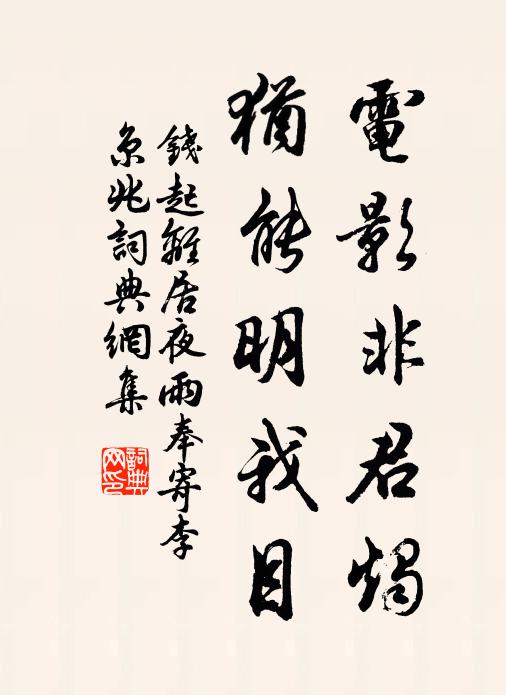 電影非君燭
猶能明我目
錢起離居夜雨奉寄李
京兆詞典網集
詞典網印